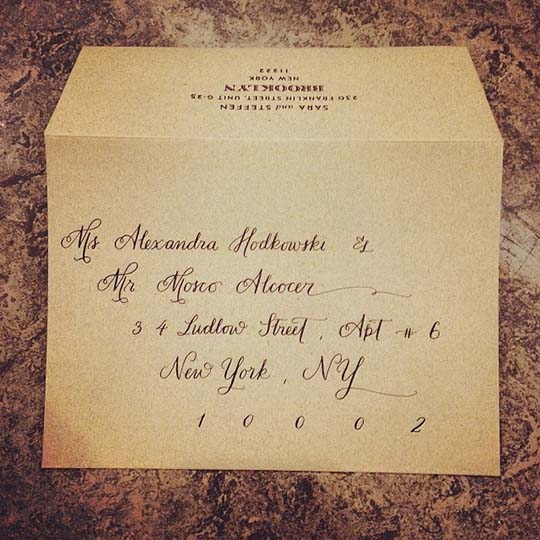 SARA and STEFFEN
230 FRANKLIN STREET, UNIT G-25
BROOKLYN
NEW YORK
11222
Ms Alexandra Hodkowski &
Mr Mosco Alcocer
34 Ludlow Street, Apt # 6
New York, NY
10002